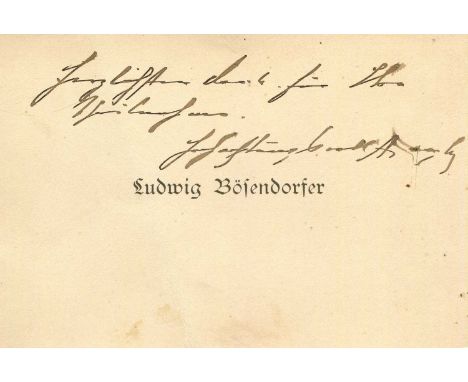 herzlichsten Dank für Ihre
Theilnahme.
Hochachtungsvollst
Ludwig Bösendorfer